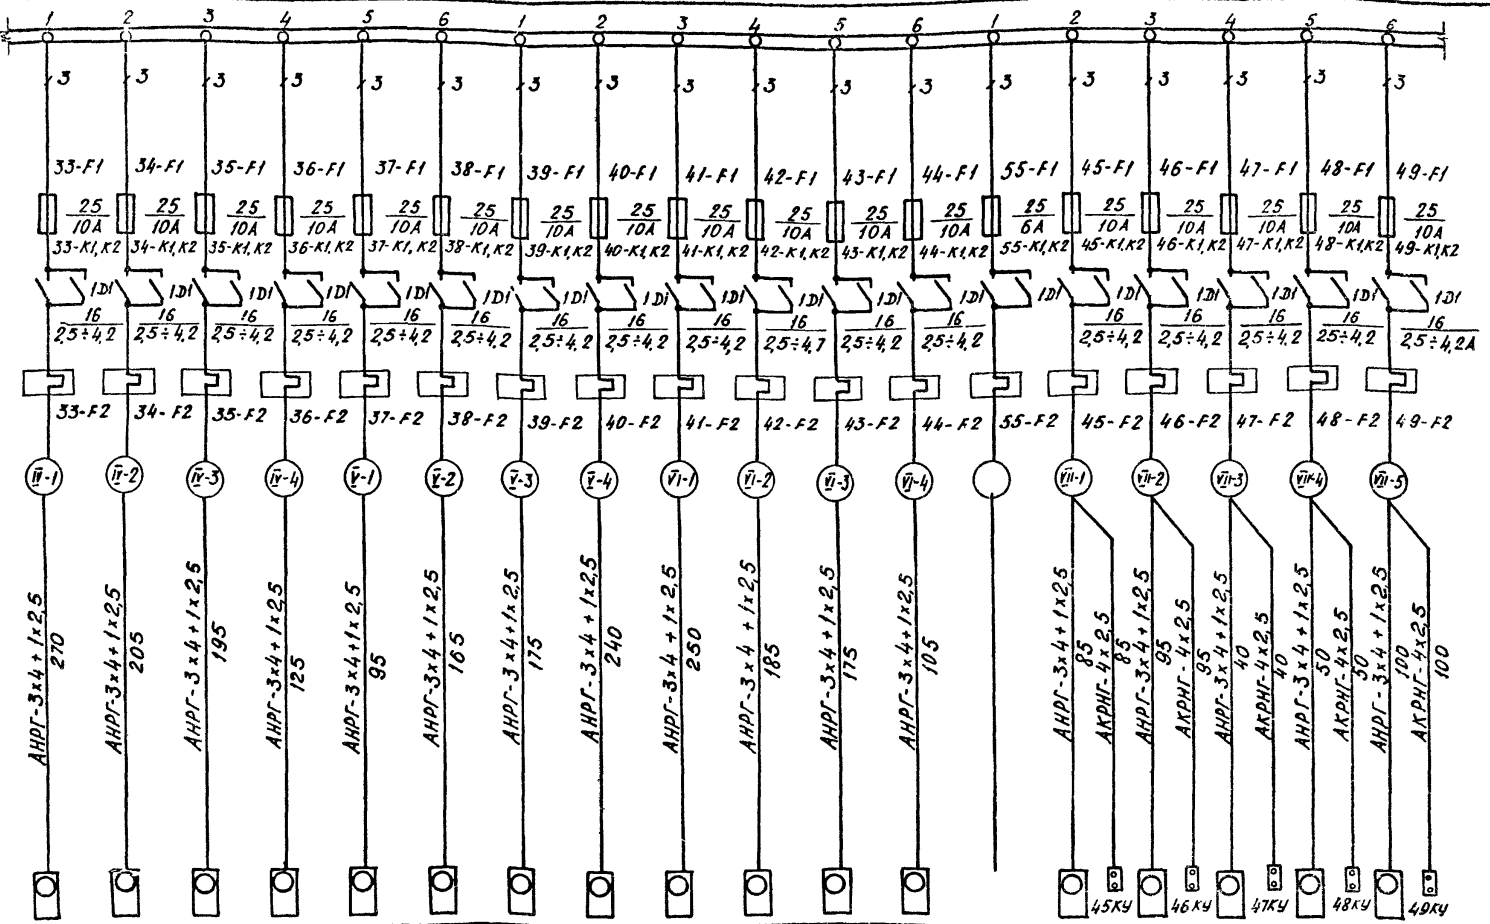 1 2 3 4 5 6 1 2 3 4 5 6 1 2 3 4 5 6
3 3 3 3 3 3 3 3 3 3 3 3 3 3 3 3 3 3
33-F1 34-F1 35-F1 36-F1 37-F1 38-F1 39-F1 40-F1 41-F1 42-F1 43-F1 44-F1 55-F1 45-F1 46-F1 47-F1 48-F1 49-F1
25 25 25 25 25 25 25 25 25 25 25 25 25 25 25 25 25 25
10А 10А 10А 10А 10А 10А 10А 10А 10А 10А 10А 10А 6А 10А 10А 10А 10А 10А
33-К1,К2 34-К1,К2 35-К1,К2 36-К1,К2 37-К1,К2 38-К1,К2 39-К1,К2 40-К1,К2 41-К1,К2 42-К1,К2 43-К1,К2 44-К1,К2 55-К1,К2 45-К1,К2 46-К1,К2 47-К1,К2 48-К1,К2 49-К1,К2
1D1 1D1 1D1 1D1 1D1 1D1 1D1 1D1 1D1 1D1 1D1 1D1 1D1 1D1 1D1 1D1 1D1 1D1
16 16 16 16 16 16 16 16 16 16 16 16 16 16 16 16 16
2,5÷4,2 2,5÷4,2 2,5÷4,2 2,5÷4,2 2,5÷4,2 2,5÷4,2 2,5÷4,2 2,5÷4,2 2,5÷4,2 2,5÷4,7 2,5÷4,2 2,5÷4,2 2,5÷4,2 2,5÷4,2 2,5÷4,2 2,5÷4,2 2,5÷4,2А
33-F2 34-F2 35-F2 36-F2 37-F2 38-F2 39-F2 40-F2 41-F2 42-F2 43-F2 44-F2 55-F2 45-F2 46-F2 47-F2 48-F2 49-F2
IV-1 IV-2 IV-3 IV-4 V-1 V-2 V-3 V-4 VI-1 VI-2 VI-3 VI-4 VII-1 VII-2 VII-3 VII-4 VII-5
АНРГ-3х4+1х2,5
270
АНРГ-3х4+1х2,5
205
АНРГ-3х4+1х2,5
195
АНРГ-3х4+1х2,5
125
АНРГ-3х4+1х2,5
95
АНРГ-3х4+1х2,5
165
АНРГ-3х4+1х2,5
175
АНРГ-3х4+1х2,5
240
АНРГ-3х4+1х2,5
250
АНРГ-3х4+1х2,5
185
АНРГ-3х4+1х2,5
175
АНРГ-3х4+1х2,5
105
АНРГ-3х4+1х2,5
85
АКРНГ-4х2,5
85
АНРГ-3х4+1х2,5
95
АКРНГ-4х2,5
95
АНРГ-3х4+1х2,5
40
АКРНГ-4х2,5
40
АНРГ-3х4+1х2,5
50
АКРНГ-4х2,5
50
АНРГ-3х4+1х2,5
100
АКРНГ-4х2,5
100
45КУ 46КУ 47КУ 48КУ 49КУ